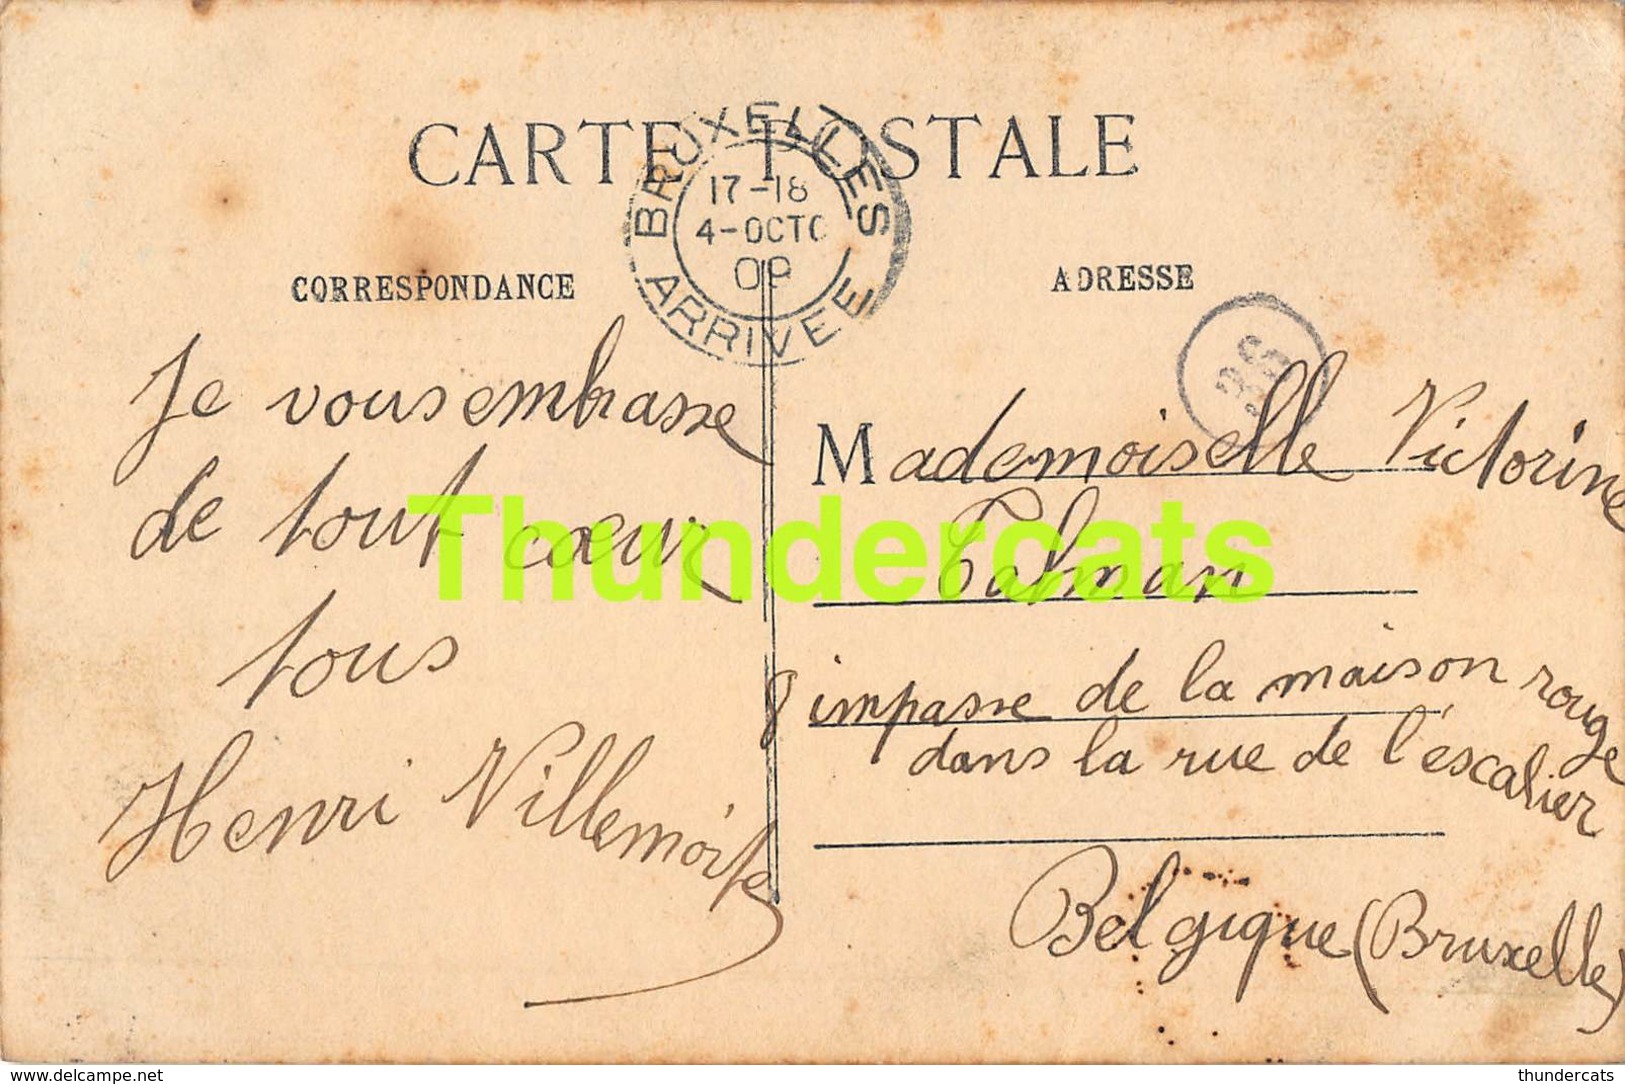 CARTE POSTALE
BRUXELLES
17-18
4-OCTO
09
ARRIVEE
CORRESPONDANCE
ADRESSE
36
Je vous embrasse
de tout cœur
tous
Henri Villemoite
Mademoiselle Victorine
Talman
8 impasse de la maison rouge
dans la rue de l'éscalier
Belgique (Bruxelle)
Thundercats
www.delcampe.net
thundercats